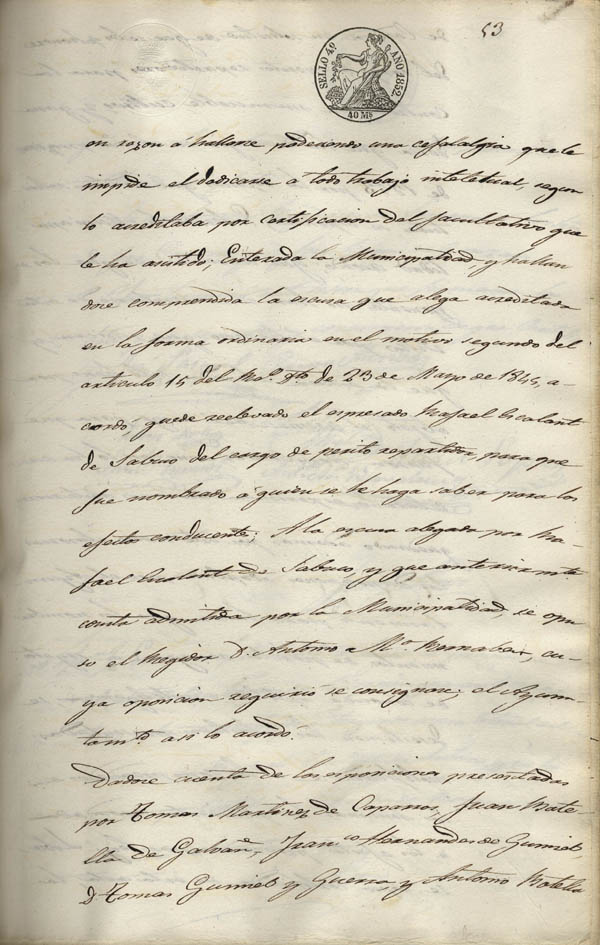 53
SELLO 4º AÑO 1852
40 Ms
en razon á hallarse padeciendo una cefalalgia que le
impide el dedicarse á todo trabajo inteletual, segun
lo acreditaba por certificacion del facultativo que
le ha asistido; Enterada la Municipalidad, y hallan
dose comprendida la escusa que alega acreditada
en la forma ordinaria en el motivo segundo del
articulo 15 del Rl. Dto. de 23 de Mayo de 1845, a-
cordó, quede reelevado el espresado Rafael Escalant
de Sabuco del cargo de perito repartidor, para que
fue nombrado á quien se le haga saber para los
efectos conducente; A la escusa alegada por Ra-
fael Escolant de Sabuco, y que anteriormte.
consta admitida por la Municipalidad, se opu
so el Regidor D. Antonio Mª Bernabeu, cu-
ya oposicion requirió se consignase; el Ayun-
tamto. asi lo acordó.
Dadose cuenta de las esposiciones presentadas
por Tomas Martinez de Caparros, Juan Bote-
lla de Galvañ, Franco. Hernandes de Gumiel,
D. Tomas Gumiel y Guerra, y Antonio Botella